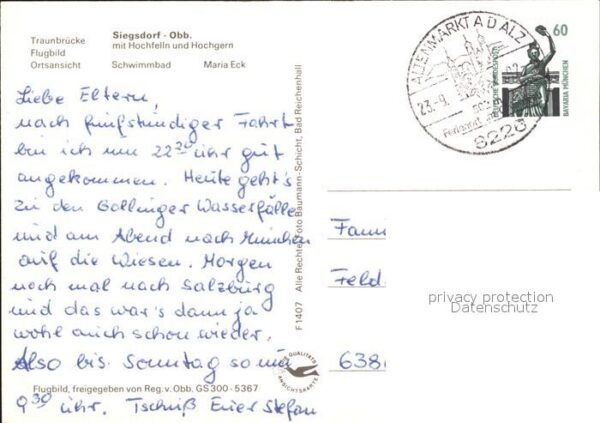 Traunbrücke
Flugbild
Ortsansicht
Siegsdorf - Obb.
mit Hochfelln und Hochgern
Schwimmbad Maria Eck
Liebe Eltern,
nach fünfstündiger Fahrt
bin ich um 22 30 Uhr gut
angekommen. Heute geht's
zu den Gollinger Wasserfälle
und am Abend nach München
auf die Wiesen. Morgen
noch mal nach Salzburg
und das war's dann ja
wohl auch schon wieder.
Also bis Sonntag so um
9 30 Uhr. Tschüß Euer Stefan
Flugbild, freigegeben von Reg. v. Obb. GS 300 - 5367
F 1407 Alle Rechte Foto Baumann-Schicht, Bad Reichenhall
QUALITÄTS
ANSICHTSKARTE
ALTENMARKT A D ALZ
23.-9.
8226
60
DEUTSCHE BUNDESPOST
BAVARIA MÜNCHEN
Fam
Feld
638
privacy protection
Datenschutz